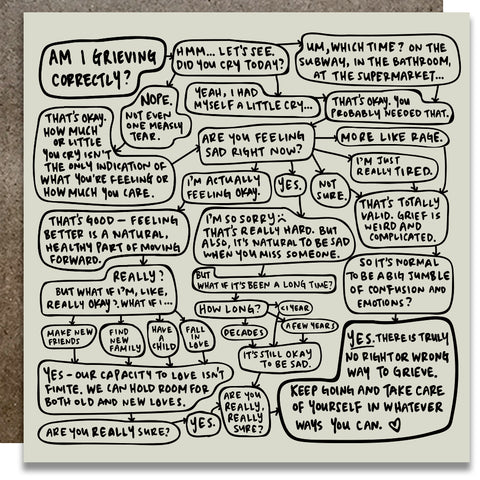 AM I GRIEVING
CORRECTLY?
HMM... LET'S SEE.
DID YOU CRY TODAY?
UM, WHICH TIME? ON THE
SUBWAY, IN THE BATHROOM,
AT THE SUPERMARKET...
NOPE.
NOT EVEN
ONE MEASLY
TEAR.
YEAH, I HAD
MYSELF A LITTLE CRY...
THAT'S OKAY. YOU
PROBABLY NEEDED THAT.
THAT'S OKAY.
HOW MUCH
OR LITTLE
YOU CRY ISN'T
THE ONLY INDICATION OF
WHAT YOU'RE FEELING OR
HOW MUCH YOU CARE.
ARE YOU FEELING
SAD RIGHT NOW?
MORE LIKE RAGE.
I'M JUST
REALLY TIRED.
I'M ACTUALLY
FEELING OKAY.
YES.
NOT
SURE.
THAT'S TOTALLY
VALID. GRIEF IS
WEIRD AND
COMPLICATED.
THAT'S GOOD – FEELING
BETTER IS A NATURAL,
HEALTHY PART OF MOVING
FORWARD.
I'M SO SORRY :(
THAT'S REALLY HARD. BUT
ALSO, IT'S NATURAL TO BE SAD
WHEN YOU MISS SOMEONE.
SO IT'S NORMAL
TO BE A BIG JUMBLE
OF CONFUSION AND
EMOTIONS?
REALLY?
BUT WHAT IF I'M, LIKE,
REALLY OKAY? WHAT IF I...
BUT
WHAT IF IT'S BEEN A LONG TIME?
HOW LONG?
<1 YEAR
A FEW YEARS
DECADES
MAKE NEW
FRIENDS
FIND
NEW
FAMILY
HAVE
A
CHILD
FALL
IN
LOVE
IT'S STILL OKAY
TO BE SAD.
YES – OUR CAPACITY TO LOVE ISN'T
FINITE. WE CAN HOLD ROOM FOR
BOTH OLD AND NEW LOVES.
ARE YOU REALLY SURE?
YES.
ARE YOU
REALLY,
REALLY
SURE?
YES. THERE IS TRULY
NO RIGHT OR WRONG
WAY TO GRIEVE.
KEEP GOING AND TAKE CARE
OF YOURSELF IN WHATEVER
WAYS YOU CAN. ♡